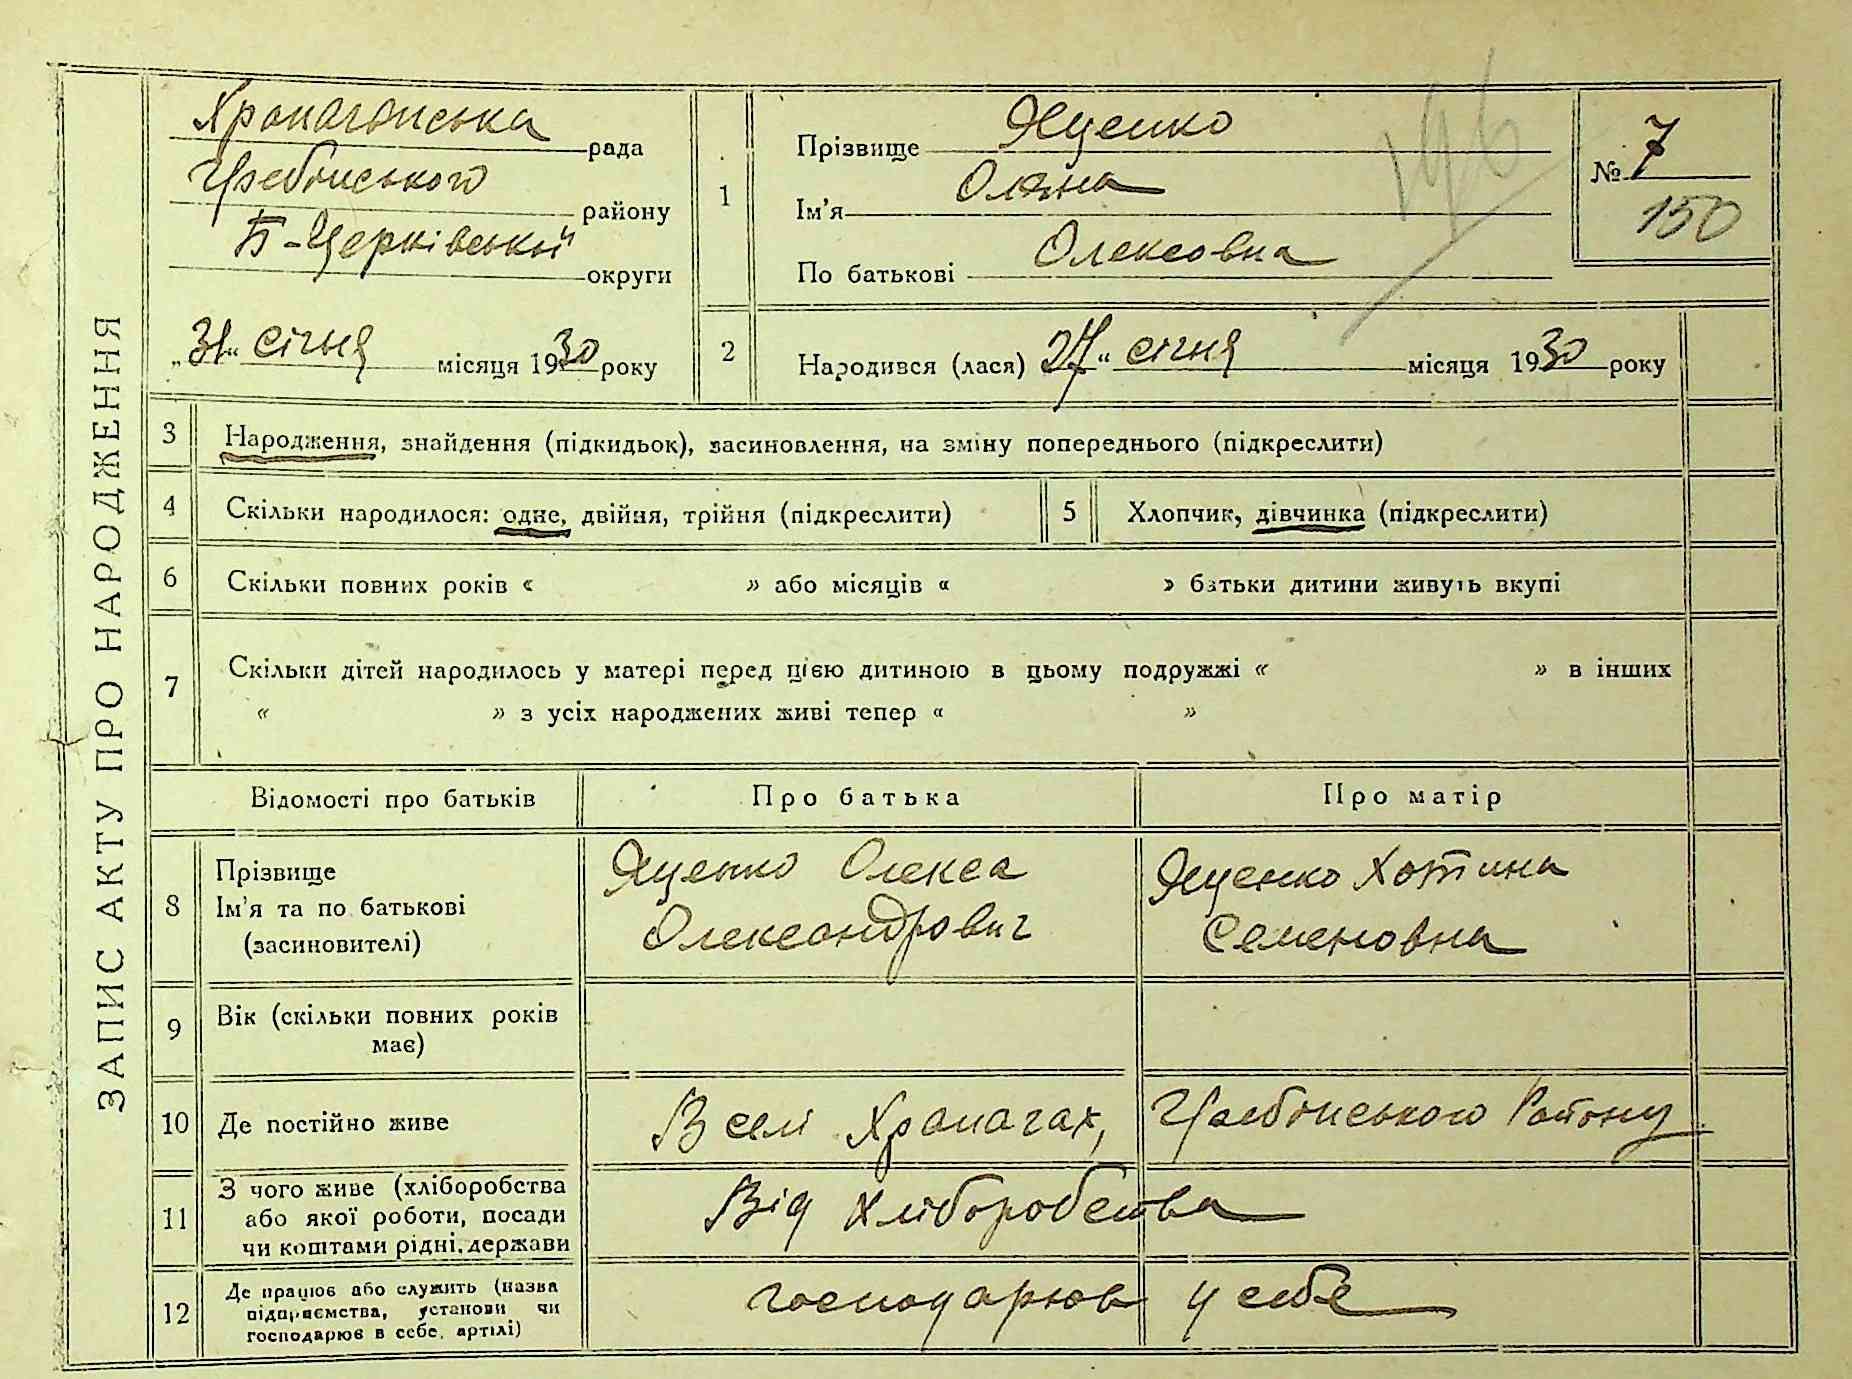 ЗАПИС АКТУ ПРО НАРОДЖЕННЯ
Храпачанська рада
Гребінського району
Б-Церківської округи
„31“ січня місяця 1930 року
1
Прізвище Яценко
Ім'я Оляна
По батькові Олексовна
196
№ 7
150
2
Народився (лася) 27“ січня місяця 1930 року
3 Народження, знайдення (підкидьок), засиновлення, на зміну попереднього (підкреслити)
4 Скільки народилося: одне, двійня, трійня (підкреслити)
5 Хлопчик, дівчинка (підкреслити)
6 Скільки повних років « » або місяців « » батьки дитини живуть вкупі
7 Скільки дітей народилось у матері перед цією дитиною в цьому подружжі « » в інших
« » з усіх народжених живі тепер « »
Відомості про батьків Про батька Про матір
8 Прізвище
Ім'я та по батькові
(засиновителі)
Яценко Олекса
Олександрович
Яценко Хотина
Семеновна
9 Вік (скільки повних років
має)
10 Де постійно живе
В селі Храпачах, Гребінського Району
11 З чого живе (хліборобства
або якої роботи, посади
чи коштами рідні, держави
Від хліборобства
12 Де працює або служить (назва
підприємства, установи чи
господарює в себе, артілі)
господарює у себе